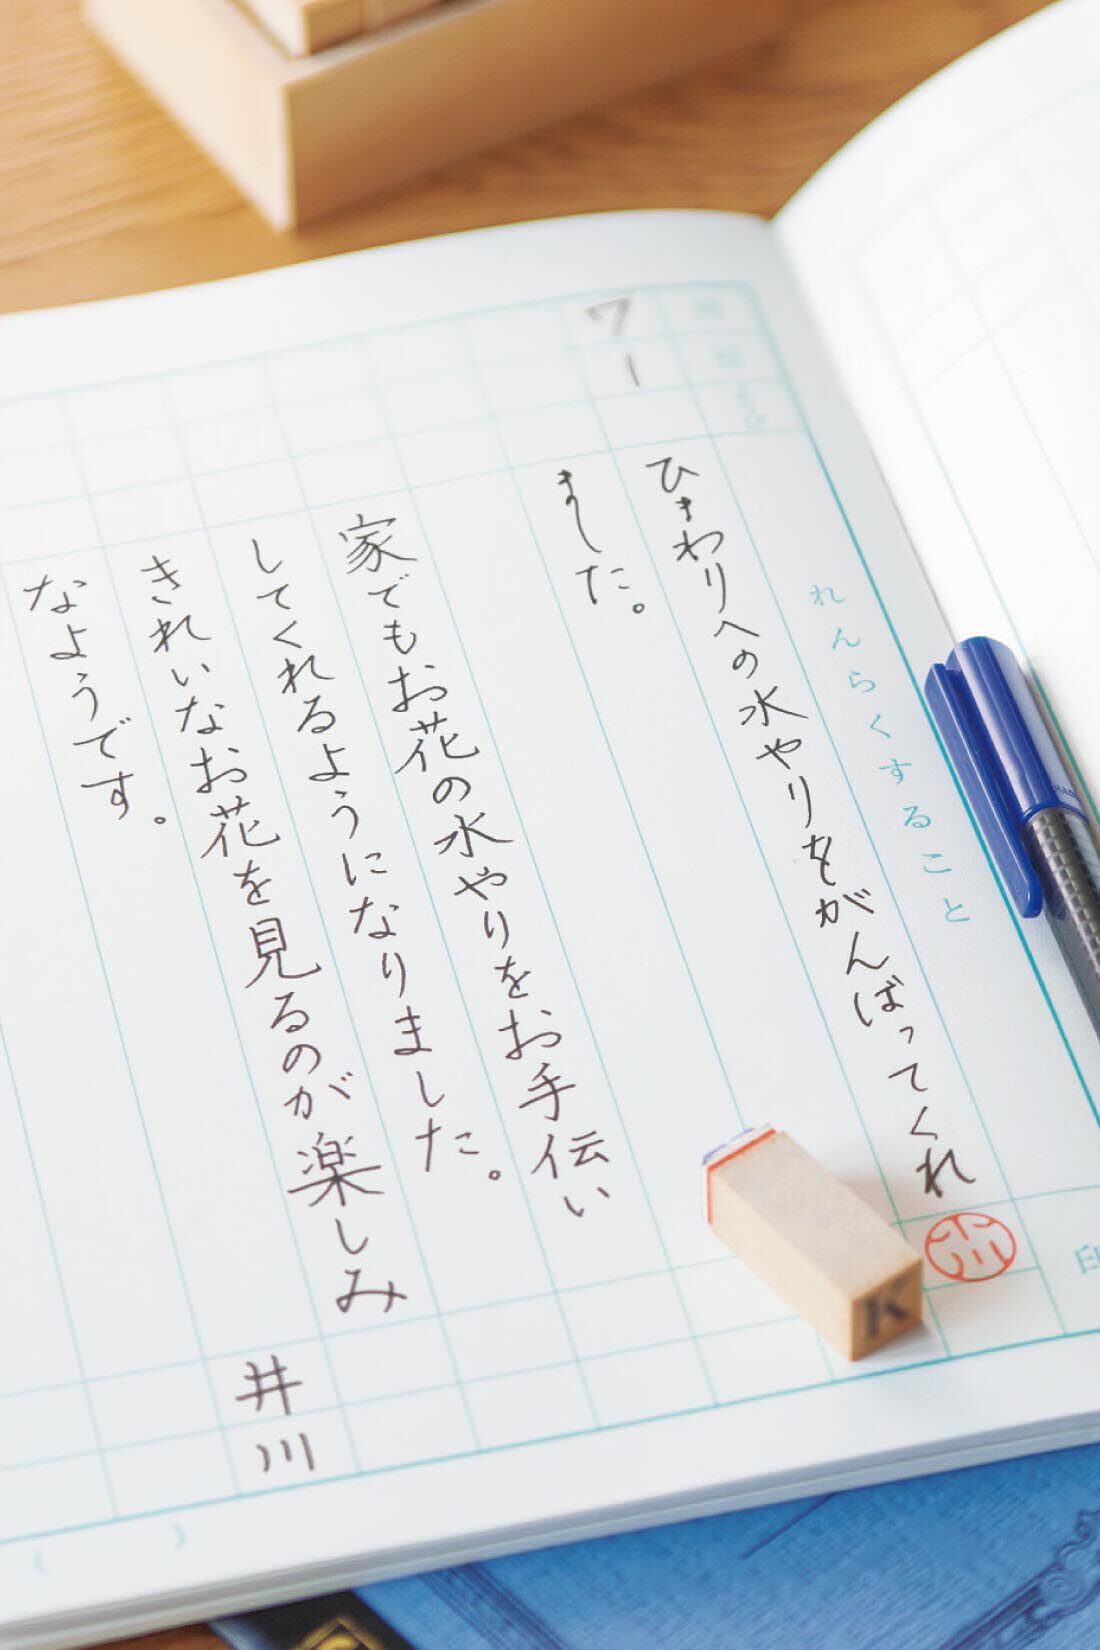 れんらくすること
印
7
1
ひまわりへの水やりをがんばってくれ
ました。
家でもお花の水やりをお手伝い
してくれるようになりました。
きれいなお花を見るのが楽しみ
なようです。
井川
K